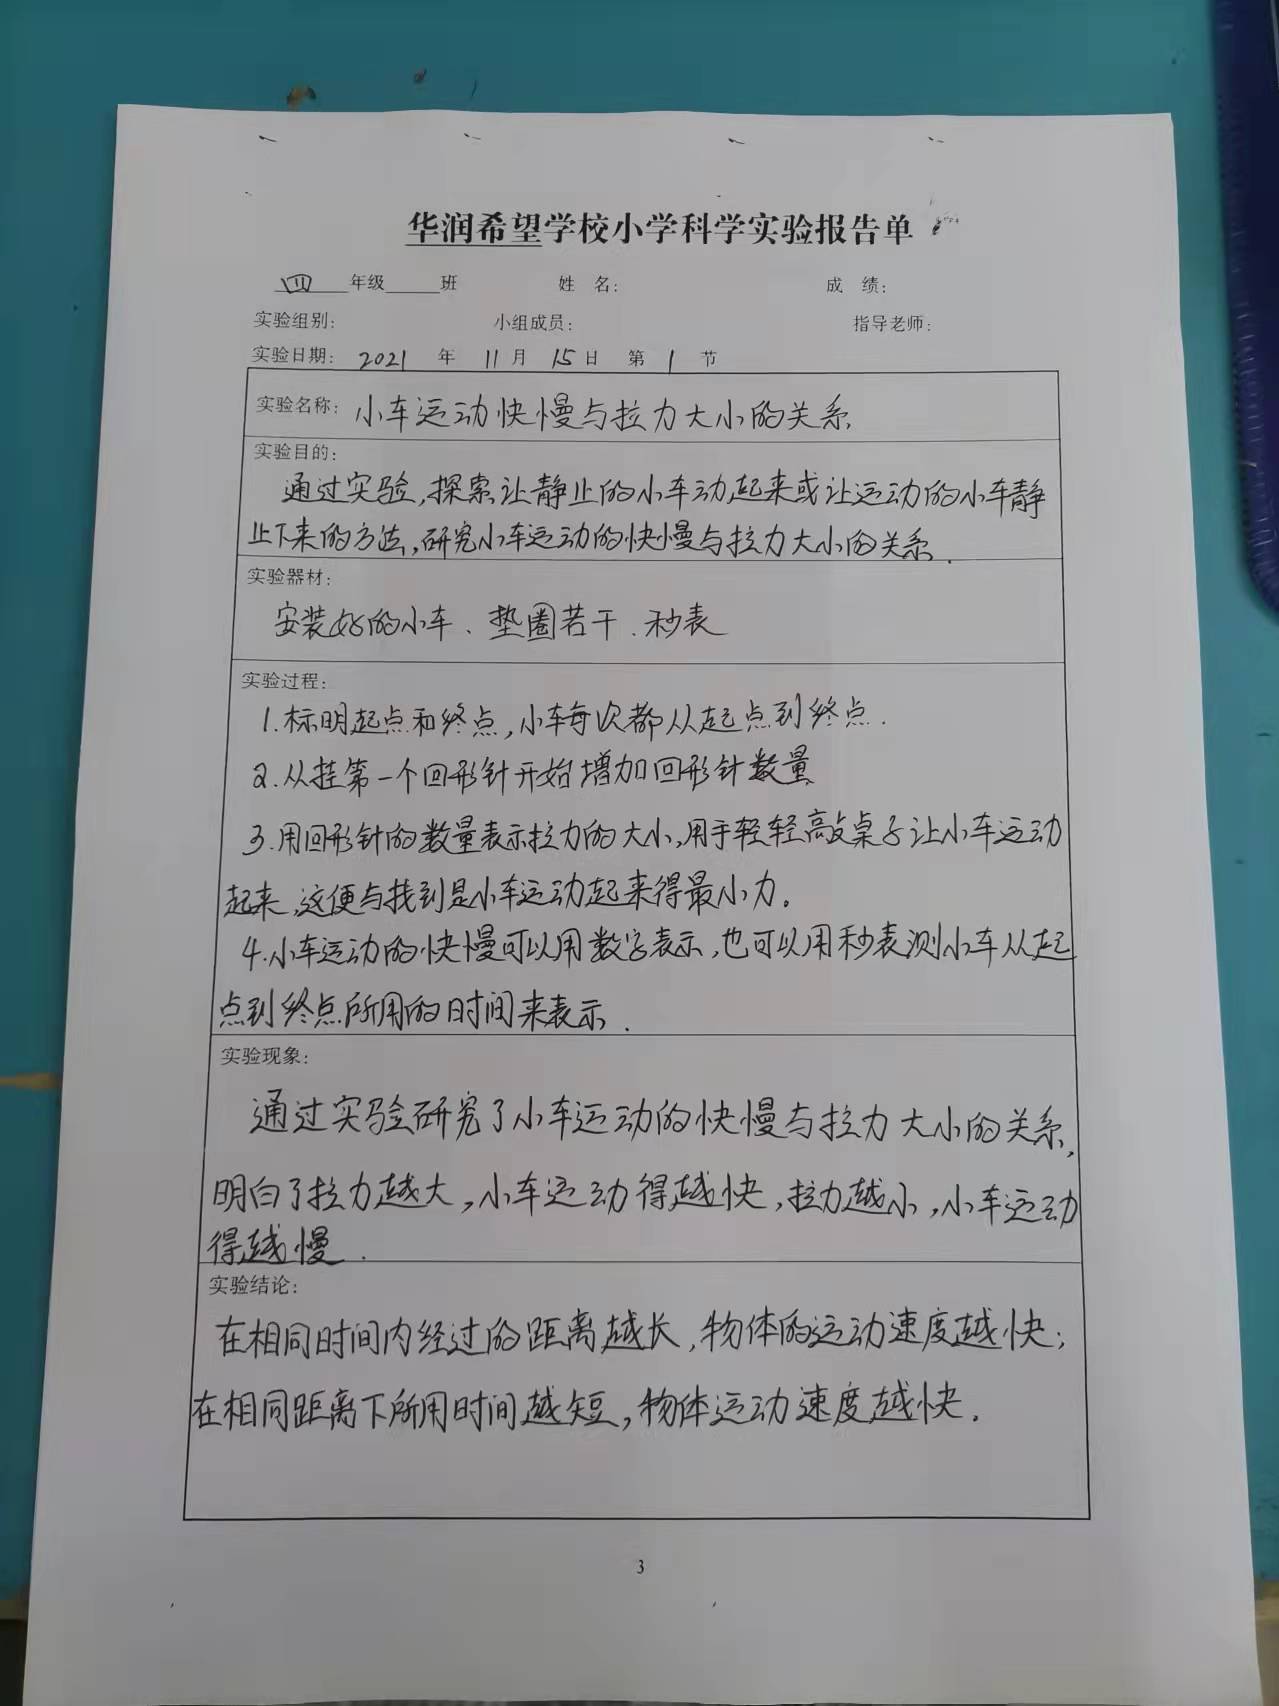 华润希望学校小学科学实验报告单
四 年级 班 姓 名: 成 绩:
实验组别: 小组成员: 指导老师:
实验日期: 2021 年 11 月 15 日 第 1 节
实验名称: 小车运动快慢与拉力大小的关系
实验目的:
通过实验,探索让静止的小车动起来或让运动的小车静
止下来的方法,研究小车运动的快慢与拉力大小的关系.
实验器材:
安装好的小车、垫圈若干.秒表
实验过程:
1.标明起点和终点,小车每次都从起点到终点.
2.从挂第一个回形针开始增加回形针数量
3.用回形针的数量表示拉力的大小,用手轻轻敲桌子让小车运动
起来,这便与找到是小车运动起来得最小力。
4.小车运动的快慢可以用数字表示,也可以用秒表测小车从起
点到终点所用的时间来表示.
实验现象:
通过实验研究了小车运动的快慢与拉力大小的关系,
明白了拉力越大,小车运动得越快,拉力越小,小车运动
得越慢.
实验结论:
在相同时间内经过的距离越长,物体的运动速度越快;
在相同距离下所用时间越短,物体运动速度越快.
3